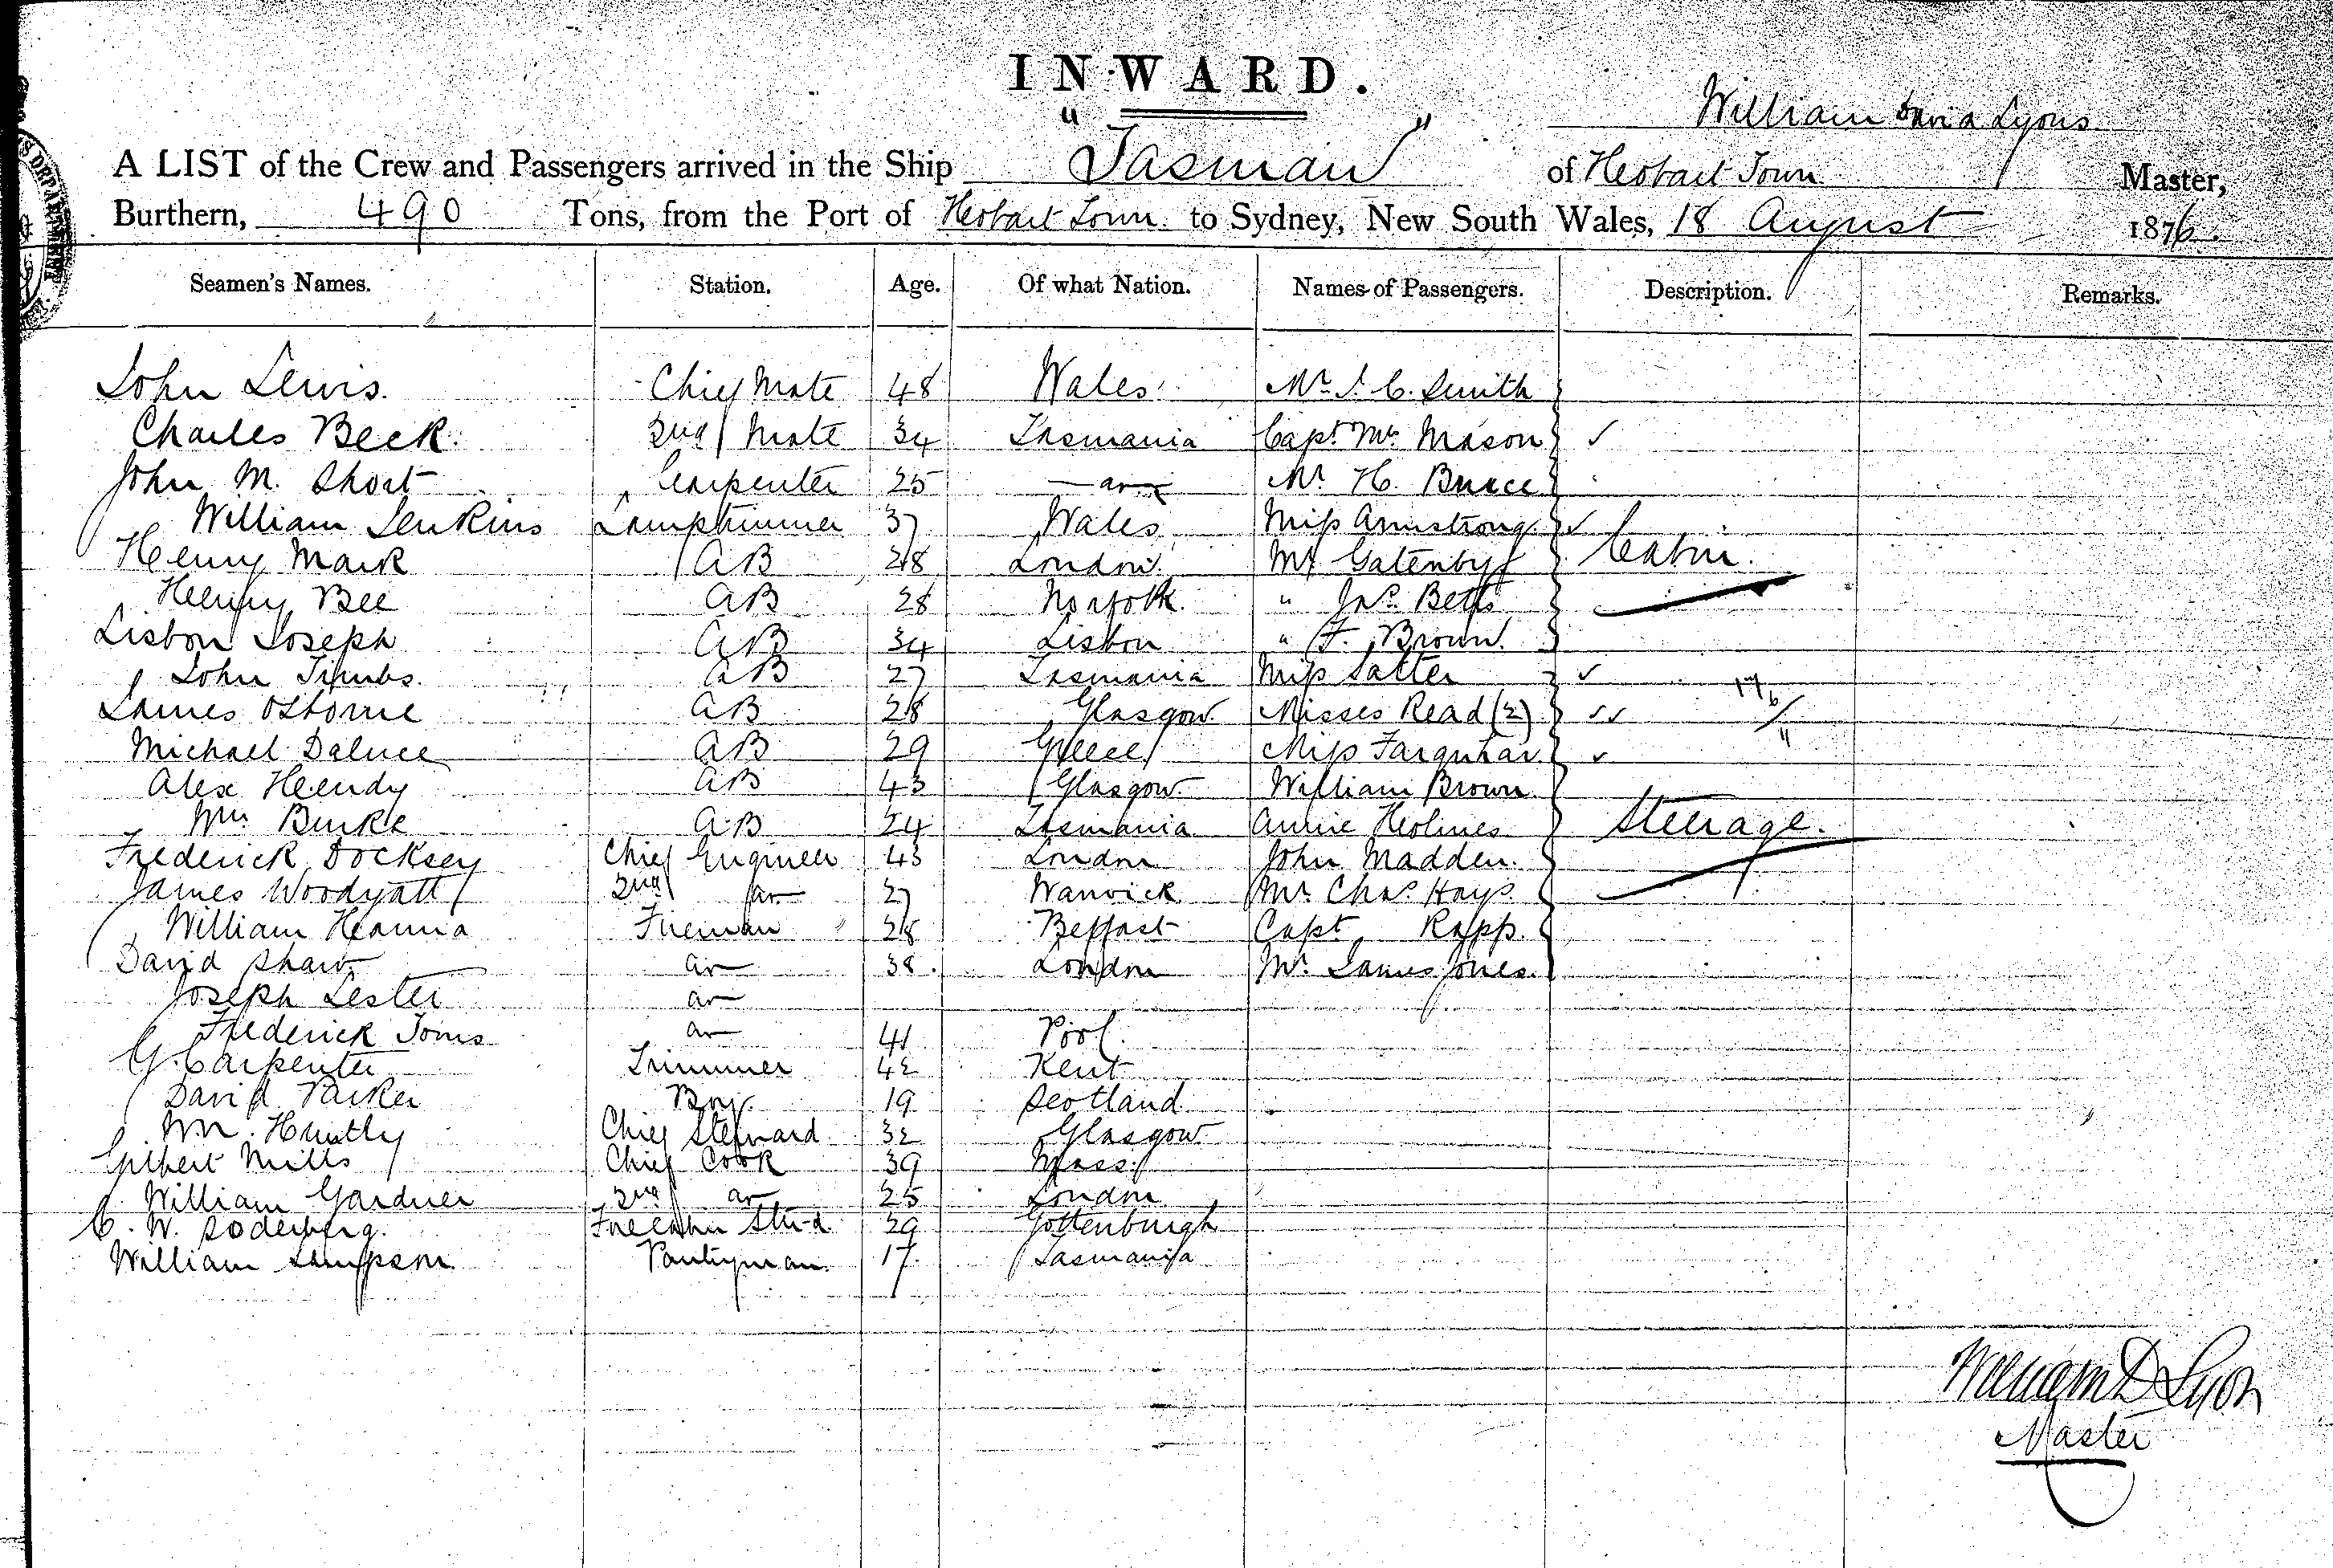 INWARD.
William David Lyons
A LIST of the Crew and Passengers arrived in the Ship "Tasman" of Hobart Town Master,
Burthern, 490 Tons, from the Port of Hobart Town to Sydney, New South Wales, 18 August 1876.
Seamen's Names. Station. Age. Of what Nation. Names of Passengers. Description. Remarks.
John Lewis. Chief Mate 48 Wales Mr. J. C. Smith
Charles Beck. 2nd Mate 34 Tasmania Capt. Mason ✓
John M. Short Carpenter 25 do Mr. H. Bruce
William Jenkins Lamptrimmer 37 Wales Miss Armstrong ✓
Henry Mark AB 28 London Mr Gatenby Cabin.
Henry Bee AB 28 Norfolk. " Jas. Betts
Lisbon Joseph AB 34 Lisbon " F. Brown.
John Timbs. AB 27 Tasmania Miss Salter ✓
James Osborne AB 28 Glasgow Misses Read (2) ✓✓
Michael AB 29 Greece Miss Farquhar ✓
Alex Hendy AB 43 Glasgow William Brown
Wm Burke AB 24 Tasmania Annie Holmes Steerage.
Frederick Docksey Chief Engineer 43 London John Madden.
James Woodyatt 2nd do 27 Warwick Mr. Chas. Hays.
William Hanna Fireman 28 Belfast Capt Rapp.
David Shaw do 38. London Mr. James Jones.
Joseph Lester do
Frederick Toms do 41 Pool.
G. Carpenter Trimmer 42 Kent
David Parker Boy. 19 Scotland
Wm. Huntly Chief Steward 32 Glasgow
Gilbert Mills Chief Cook 39 Mass.
William Gardner 2nd do 25 London
C. W. Soderberg. Forecabin Stw-d 29 Gottenburgh
William Simpson Pantryman. 17. Tasmania
William D Lyon
Master